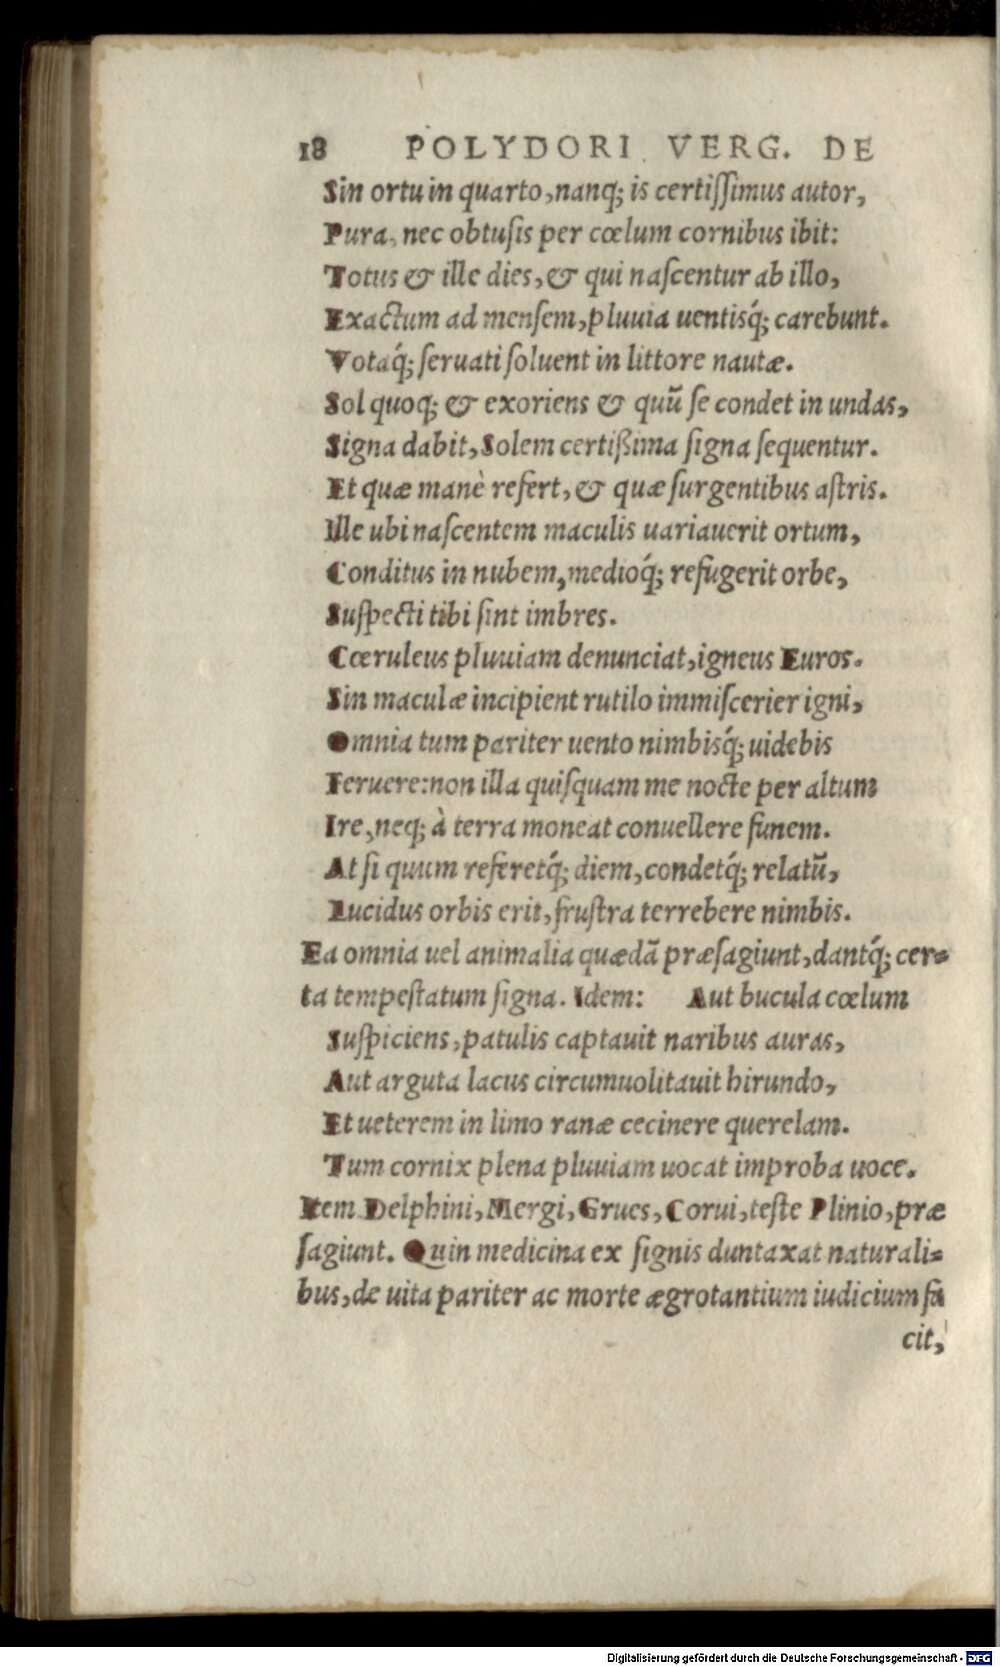 18 POLYDORI VERG. DE
Sin ortu in quarto, nanq; is certissimus autor,
Pura, nec obtusis per cœlum cornibus ibit:
Totus & ille dies, & qui nascentur ab illo,
Exactum ad mensem, pluuia uentisq́; carebunt.
Votaq́; seruati soluent in littore nautæ.
Sol quoq; & exoriens & quū se condet in undas,
Signa dabit, Solem certißima signa sequentur.
Et quæ manè refert, & quæ surgentibus astris.
Ille ubi nascentem maculis uariauerit ortum,
Conditus in nubem, medioq́; refugerit orbe,
Suspecti tibi sint imbres.
Cœruleus pluuiam denunciat, igneus Euros.
Sin maculæ incipient rutilo immiscerier igni,
Omnia tum pariter uento nimbisq́; uidebis
Feruere: non illa quisquam me nocte per altum
Ire, neq; à terra moneat conuellere funem.
At si quum referetq́; diem, condetq́; relatū,
Lucidus orbis erit, frustra terrebere nimbis.
Ea omnia uel animalia quædã præsagiunt, dantq́; cer=
ta tempestatum signa. Idem: Aut bucula cœlum
Suspiciens, patulis captauit naribus auras,
Aut arguta lacus circumuolitauit hirundo,
Et ueterem in limo ranæ cecinere querelam.
Tum cornix plena pluuiam uocat improba uoce.
Item Delphini, Mergi, Grues, Corui, teste Plinio, præ
sagiunt. Quin medicina ex signis duntaxat naturali=
bus, de uita pariter ac morte ægrotantium iudicium fa
cit,
Digitalisierung gefördert durch die Deutsche Forschungsgemeinschaft - DFG